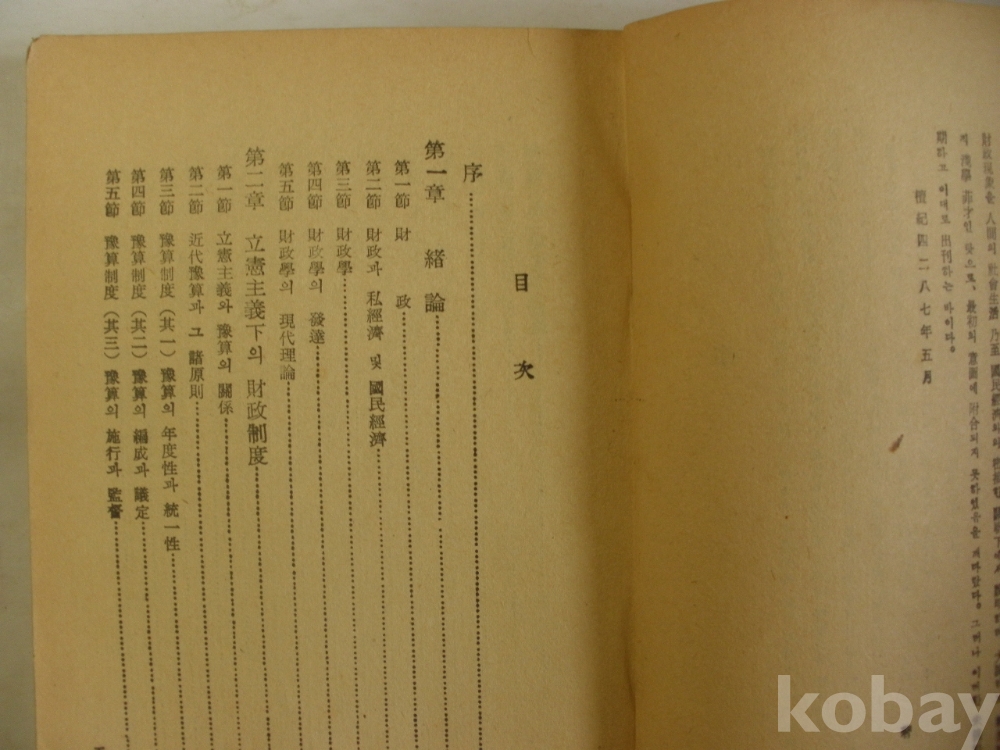 財政現象을 人間의 社會生活 乃至 國民經濟
淺學 非才인 탓으로, 最初의 意圖에 附合되지 못하였음을 그러나
期하고 이대로 出刊하는 바이다。
檀紀四二八七年五月
目 次
序
第一章 緖論
第一節 財 政
第二節 財政과 私經濟 및 國民經濟
第三節 財政學
第四節 財政學의 發達
第五節 財政學의 現代理論
第二章 立憲主義下의 財政制度
第一節 立憲主義와 豫算의 關係
第二節 近代豫算과 그 諸原則
第三節 豫算制度(其一) 豫算의 年度性과 統一性
第四節 豫算制度(其二) 豫算의 編成과 議定
第五節 豫算制度(其三) 豫算의 施行과 監督
kobay